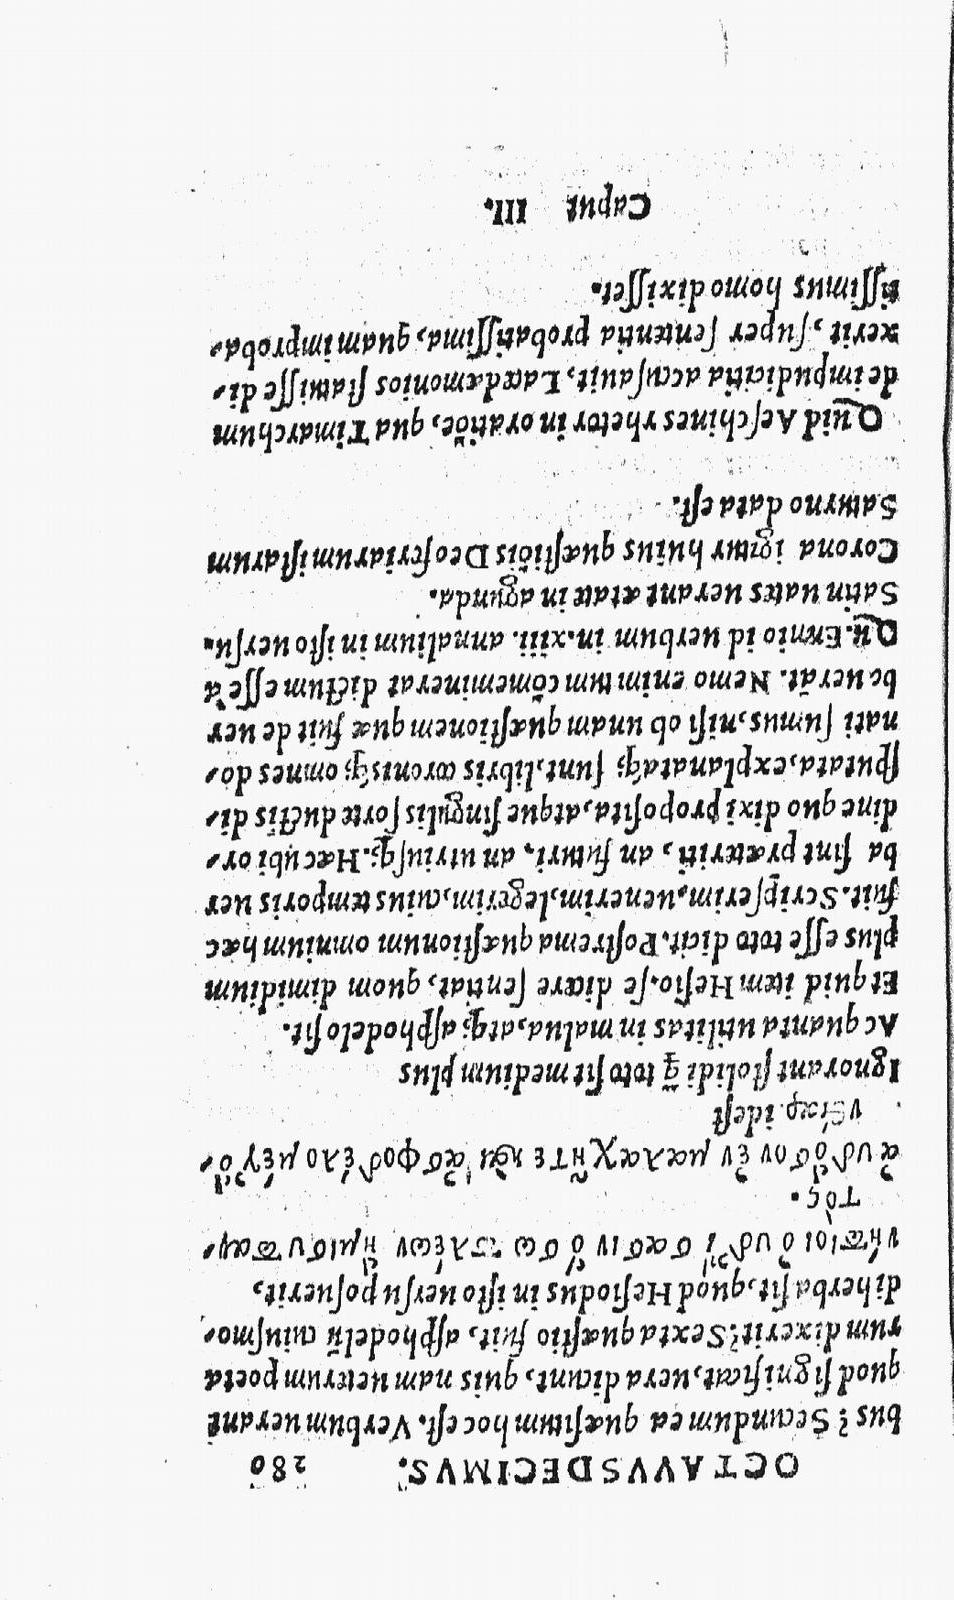 OCTAVVSDECIMVS. 280
bus? Secundum ea quæsitum hoc est. Verbum uerant
quod significat, uera dicunt, quis nam ueterum poeta
rum dixerit? Sexta quæstio fuit, asphodelũ cuiusmo-
di herba sit, quod Hesiodus in isto uersu posuerit,
νήπιοι ὀυδ' ἴσασιν ὅσῳ πλέων ἥμισυ παν-
τός.
ἀυδ' ὅσον ἐν μαλαχῆ τε καὶ ἀσφοδέλῳ μέγ' ὄ-
νειαρ. idest
Ignorant stolidi q̃ toto sit medium plus
Ac quanta utilitas in malua, atq; asphodelo sit.
Et quid item Hesio. se dicere sentiat, quom dimidium
plus esse toto dicit. Postrema quæstionum omnium hæc
fuit. Scripserim, uenerim, legerim, cuius temporis uer
ba sint præteriti, an futuri, an utriusq;. Hæc ubi or-
dine quo dixi proposita, atque singulis sorte ductis di-
sputata, explanataq; sunt, libris coronisq; omnes do-
nati sumus, nisi ob unam quæstionem quæ fuit de uer
bo uerãt. Nemo enim tum cõmeminerat dictum esse à
Qu. Ennio id uerbum in .xiii. annalium in isto uersu.
Satin uates uerant ætate in agunda.
Corona igitur huius quæstiõis Deo feriarum istarum
Saturno data est.
Quid Aeschines rhetor in oratiõe, qua Timarchum
de impudicitia accusauit, Lacædæmonios statuisse di-
xerit, super sententia probatissima, quam improba-
tissimus homo dixisset.
Caput III.